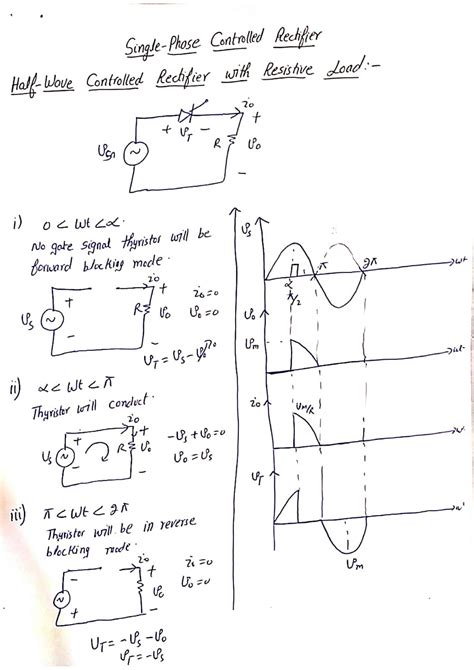 Single-Phase Controlled Rectifier
Half-Wave Controlled Rectifier with Resistive Load:-
io
+ VT -
+
R
Vo
-
i) 0 < wt < α.
No gate signal thyristor will be
forward blocking mode.
io
+
+
Vs
R
Vo
-
-
io=0
Vo=0
VT = Vs - Vo
ii) α < wt < π
Thyristor will conduct.
io
+
Vs
R
Vo
-
-Vs + Vo = 0
Vo = Vs
iii) π < wt < 2π
Thyristor will be in reverse
blocking mode.
io
-
+
+
-
Vo=0
VT = -Vs - Vo
VT = -Vs
Vs
α
π
2π
wt
π/2
Vo
Vm
wt
io
Vm/R
VT
Vm